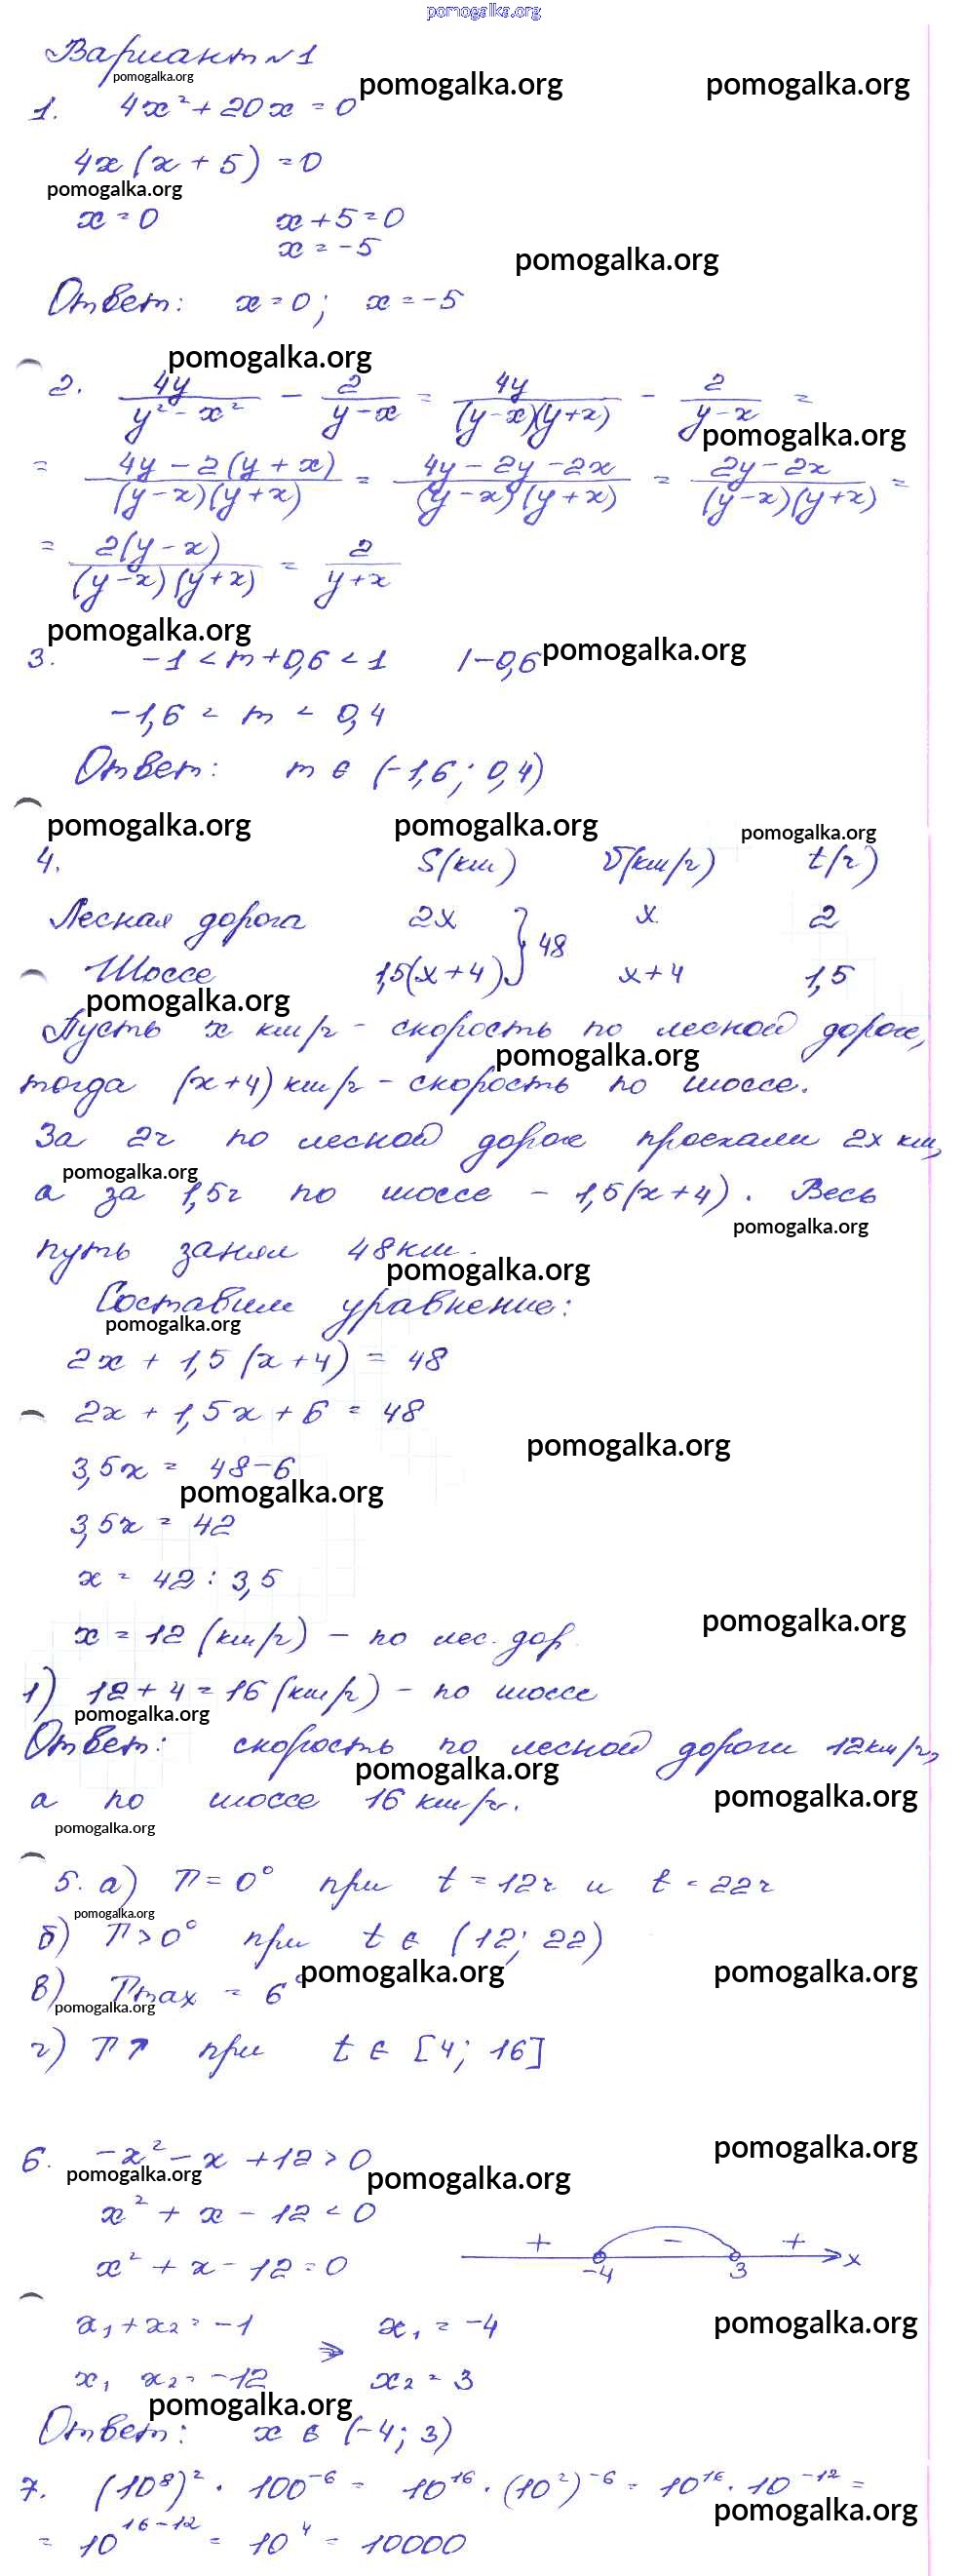 pomogalka.org
Вариант №1
pomogalka.org pomogalka.org pomogalka.org
1. 4x² + 20x = 0
4x(x + 5) = 0
pomogalka.org
x = 0 x + 5 = 0
x = -5
pomogalka.org
Ответ: x = 0; x = -5
pomogalka.org
2. 4y/(y² - x²) - 2/(y - x) = 4y/((y - x)(y + x)) - 2/(y - x) =
pomogalka.org
= (4y - 2(y + x))/((y - x)(y + x)) = (4y - 2y - 2x)/((y - x)(y + x)) = (2y - 2x)/((y - x)(y + x)) =
= 2(y - x)/((y - x)(y + x)) = 2/(y + x)
pomogalka.org pomogalka.org
3. -1 < m + 0,6 < 1 | -0,6
-1,6 < m < 0,4
Ответ: m ∈ (-1,6; 0,4)
pomogalka.org pomogalka.org pomogalka.org
4. S(км) V(км/ч) t(ч)
Лесная дорога 2x } 48 x 2
Шоссе 1,5(x + 4) x + 4 1,5
pomogalka.org
Пусть x км/ч - скорость по лесной дороге,
pomogalka.org
тогда (x + 4) км/ч - скорость по шоссе.
За 2ч по лесной дороге проехали 2x км,
pomogalka.org
а за 1,5ч по шоссе - 1,5(x + 4). Весь
pomogalka.org
путь занял 48км.
pomogalka.org
Составим уравнение:
pomogalka.org
2x + 1,5(x + 4) = 48
2x + 1,5x + 6 = 48
pomogalka.org
3,5x = 48 - 6
pomogalka.org
3,5x = 42
x = 42 : 3,5
pomogalka.org
x = 12 (км/ч) - по лес. дор.
1) 12 + 4 = 16 (км/ч) - по шоссе
pomogalka.org
Ответ: скорость по лесной дороги 12км/ч,
pomogalka.org
а по шоссе 16 км/ч.
pomogalka.org
pomogalka.org
5. а) T = 0° при t = 12ч и t = 22ч
pomogalka.org
б) T > 0° при t ∈ (12; 22)
pomogalka.org pomogalka.org
в) Tmax = 6°
pomogalka.org
г) T↗ при t ∈ [4; 16]
pomogalka.org
6. -x² - x + 12 > 0
pomogalka.org pomogalka.org
x² + x - 12 < 0
x² + x - 12 = 0 + -4 - 3 + x
x₁ + x₂ = -1 ⇒ x₁ = -4
pomogalka.org
x₁ x₂ = -12 x₂ = 3
pomogalka.org
Ответ: x ∈ (-4; 3)
7. (10⁸)² · 100⁻⁶ = 10¹⁶ · (10²)⁻⁶ = 10¹⁶ · 10⁻¹² =
pomogalka.org
= 10¹⁶⁻¹² = 10⁴ = 10000